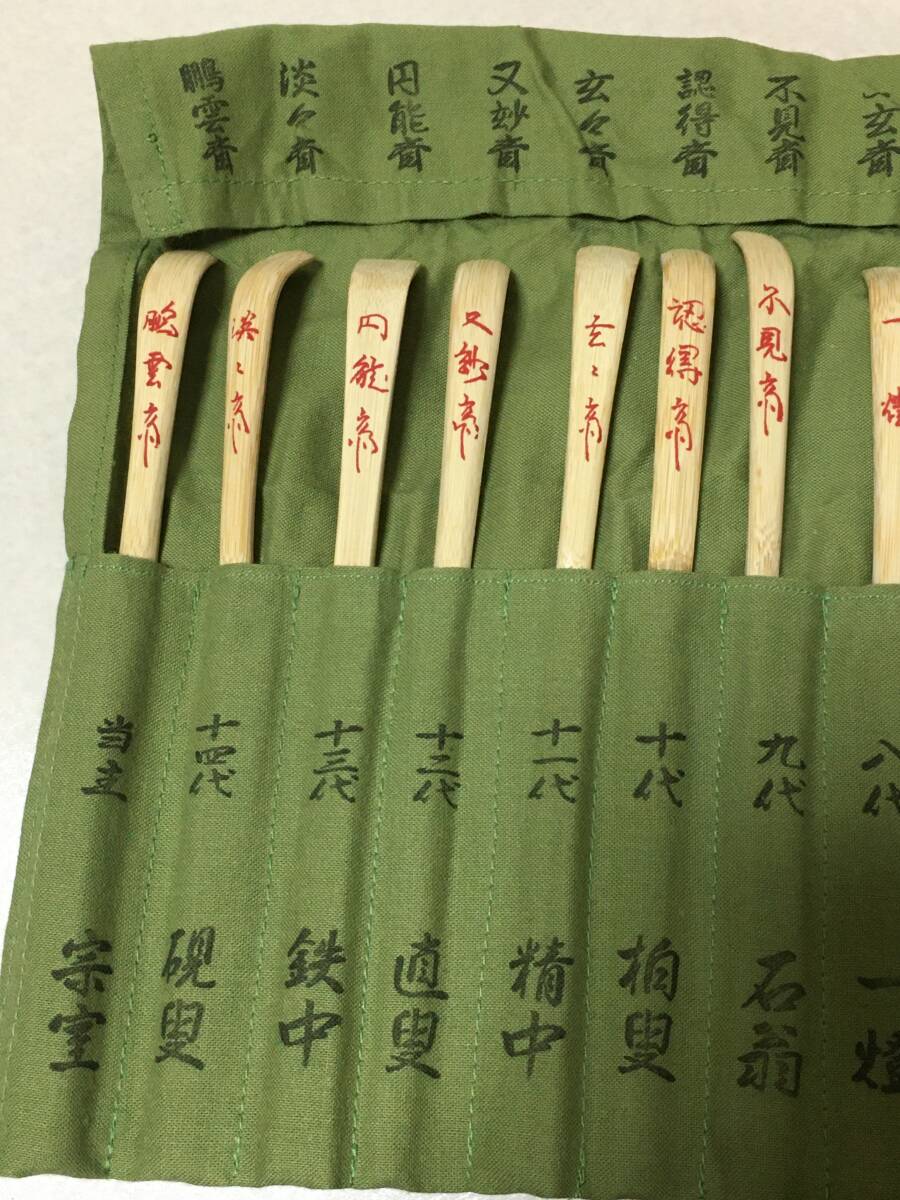 玄斎
不見斎
認得斎
玄々斎
又妙斎
円能斎
淡々斎
鵬雲斎
一燈
不見斎
認得斎
玄〻斎
又妙斎
円能斎
淡〻斎
鵬雲斎
八代
九代
十代
十一代
十二代
十三代
十四代
当主
一燈
石翁
柏叟
精中
直叟
鉄中
硯叟
宗室